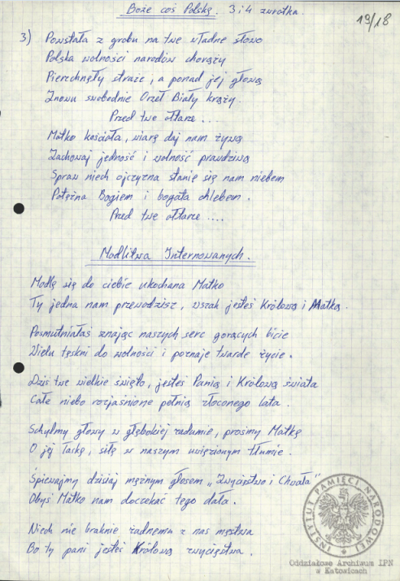 Boże coś Polskę. 3 i 4 zwrotka.
19/18
3) Powstała z grobu na twe władne słowo
Polska wolności narodów chorąży
Pierzchnęły straże, a ponad jej głową
Znowu swobodnie Orzeł Biały krąży.
Przed twe ołtarze ....
Matko kościoła, wiarę daj nam żywą
Zachowaj jedność i wolność prawdziwą
Spraw niech ojczyzna stanie się nam niebem
Potężna Bogiem i bogata chlebem.
Przed twe ołtarze ....
Modlitwa Internowanych.
Modlę się do ciebie ukochana Matko
Ty jedna nam przewodzisz, wszak jesteś Królową i Matką.
Posmutniałaś znając naszych serc gorących bicie
Wielu tęskni do wolności i poznaje twarde życie.
Dziś twe wielkie święto, jesteś Panią i Królową świata
Całe niebo rozjaśnione pełnią złoconego lata.
Schylmy głowy w głębokiej zadumie, prosmy Matkę
O jej łaskę, siłę w naszym uwięzionym tłumie.
Śpiewajmy dzisiaj mężnym głosem „Zwycięstwo i Chwała"
Obyś Matko nam doczekać tego dała.
Niech nie braknie żadnemu z nas męstwa
Bo ty pani jesteś Królową zwycięstwa.
INSTYTUT PAMIĘCI NARODOWEJ
Oddziałowe Archiwum IPN
w Katowicach